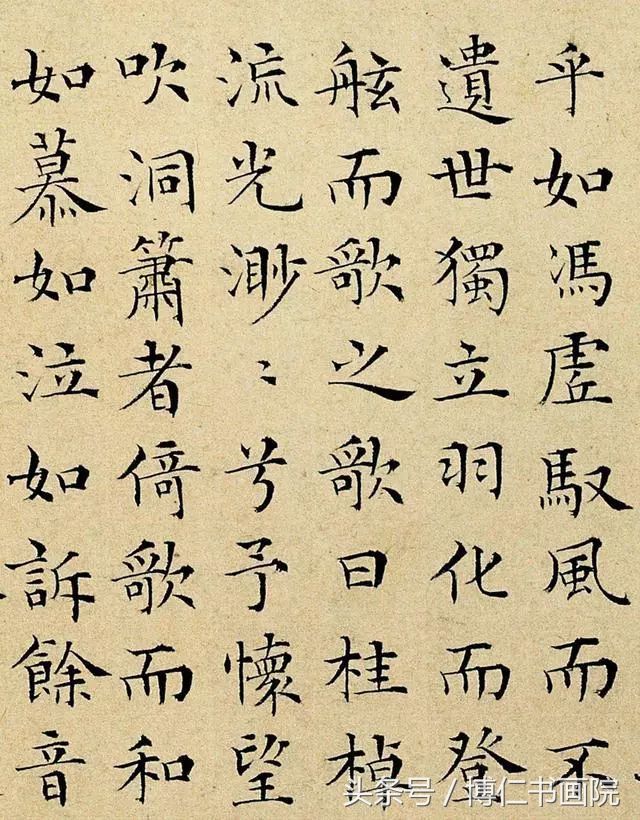 乎如馮虛馭風而不
遺世獨立羽化而登
舷而歌之歌曰桂棹
流光渺〻兮予懷望
吹洞簫者倚歌而和
如慕如泣如訴餘音
头条号/博仁书画院